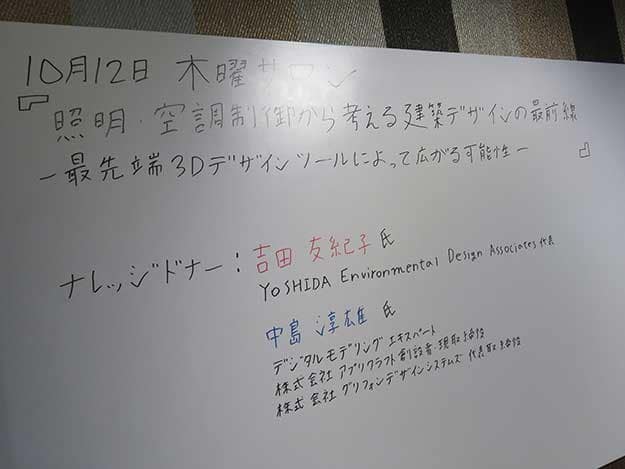 10月12日 木曜サロン
『照明・空調制御から考える建築デザインの最前線
－最先端3Dデザインツールによって広がる可能性－』
ナレッジドナー：吉田 友紀子 氏
YOSHIDA Environmental Design Associates 代表
中島 淳雄 氏
デジタルモデリング エキスパート
株式会社 アプリクラフト 創設者・現取締役
株式会社 グリフォンデザインシステムズ 代表取締役